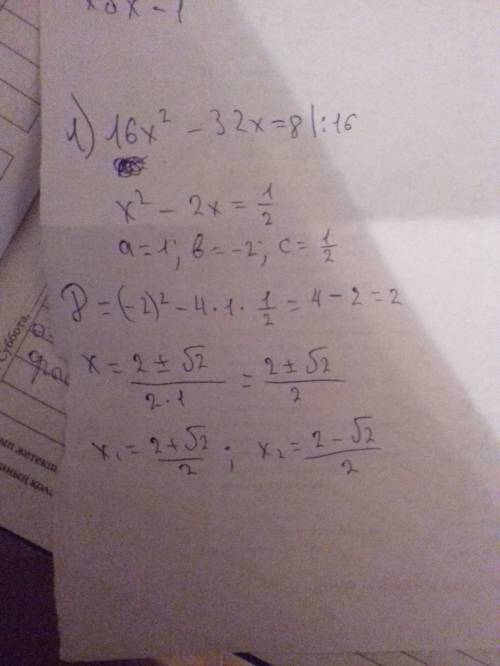 x5x - 1
1) 16x² - 32x = 8 |:16
x² - 2x = 1/2
a = 1; b = -2; c = 1/2
D = (-2)² - 4 · 1 · 1/2 = 4 - 2 = 2
x = (2 ± √2)/(2 · 1) = (2 ± √2)/2
x₁ = (2 + √2)/2 ; x₂ = (2 - √2)/2
Суббота